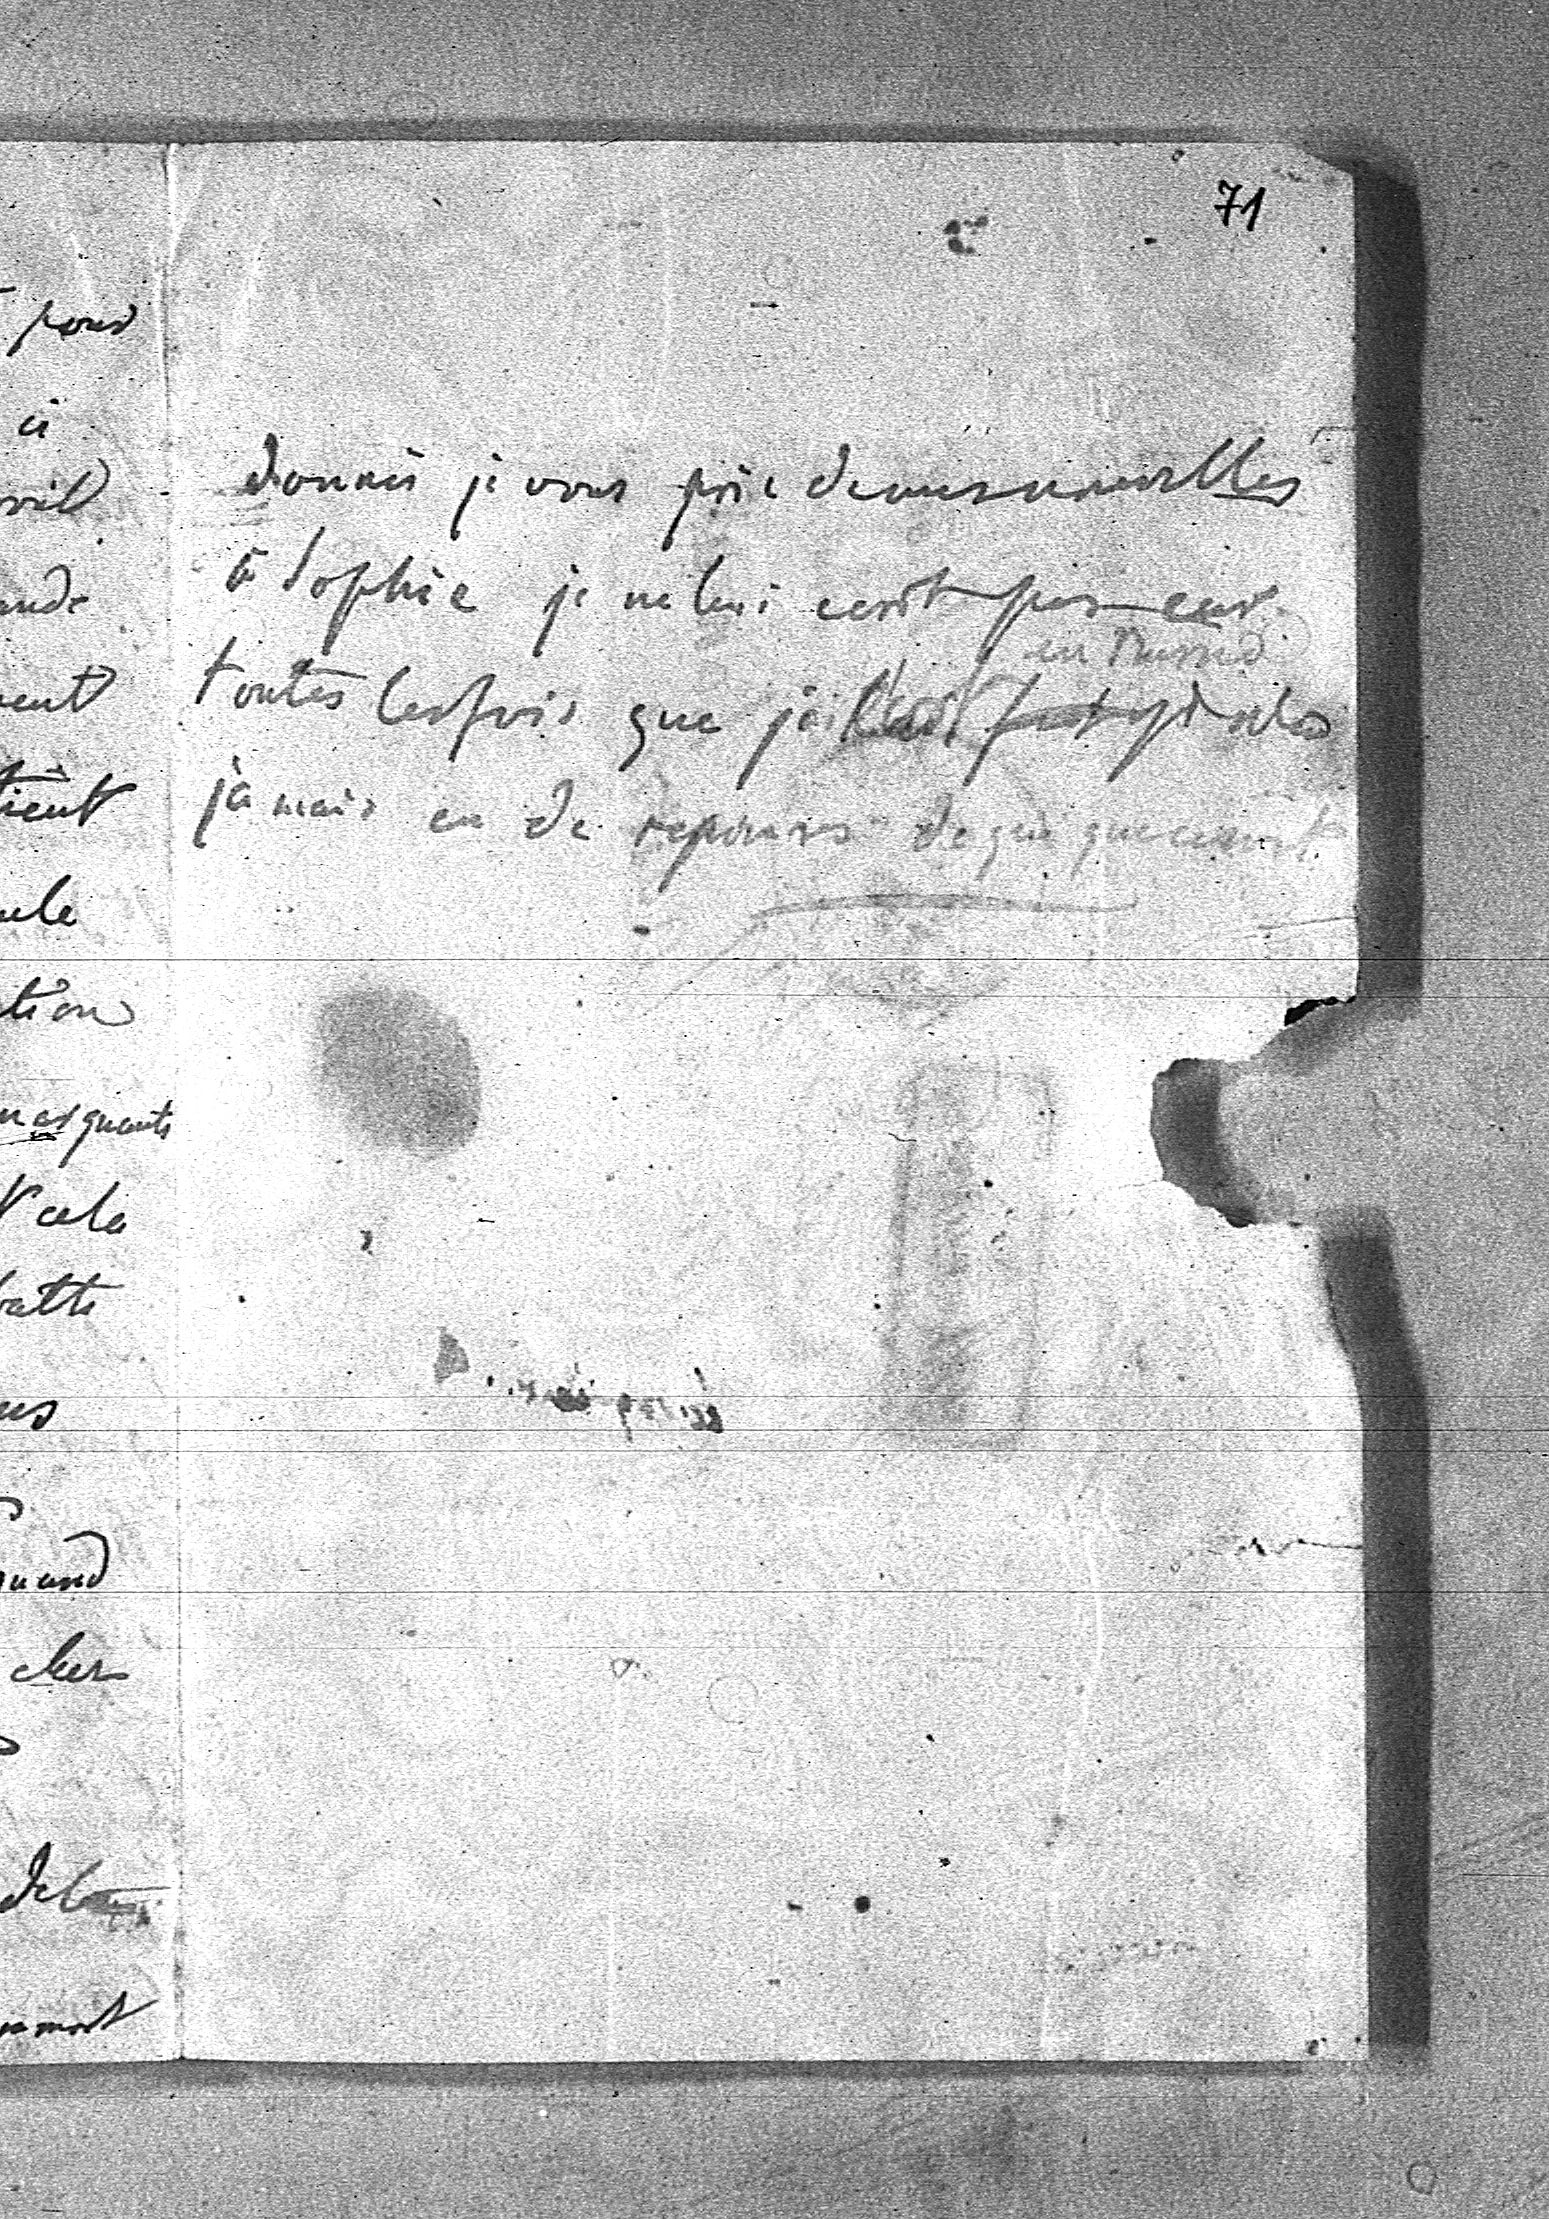 71
pour
ci
vril
ande
ment
tient
cule
tion
marquants
cela
batte
quand
cher
de la
donnés je vous prie de mes nouvelles
à Sophie je ne lui écrit pas car
en Russie
toutes les fois que j'ai je n'ai
jamais eu de reponses de qui que ce soit